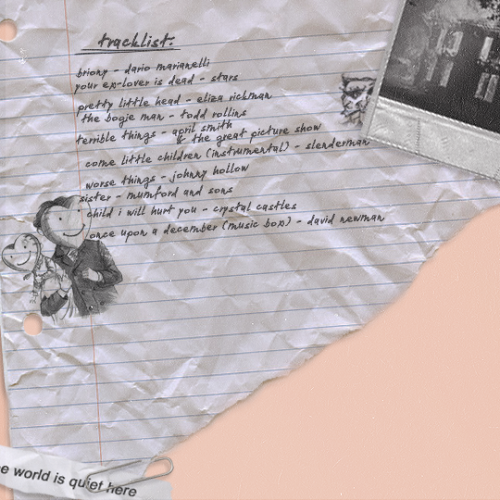 tracklist:
briony - dario marianelli
your ex-lover is dead - stars
pretty little head - eliza rickman
the bogie man - todd rollins
terrible things - april smith
& the great picture show
come little children (instrumental) - slenderman
worse things - johnny hollow
sister - mumford and sons
child i will hurt you - crystal castles
once upon a december (music box) - david newman
e world is quiet here